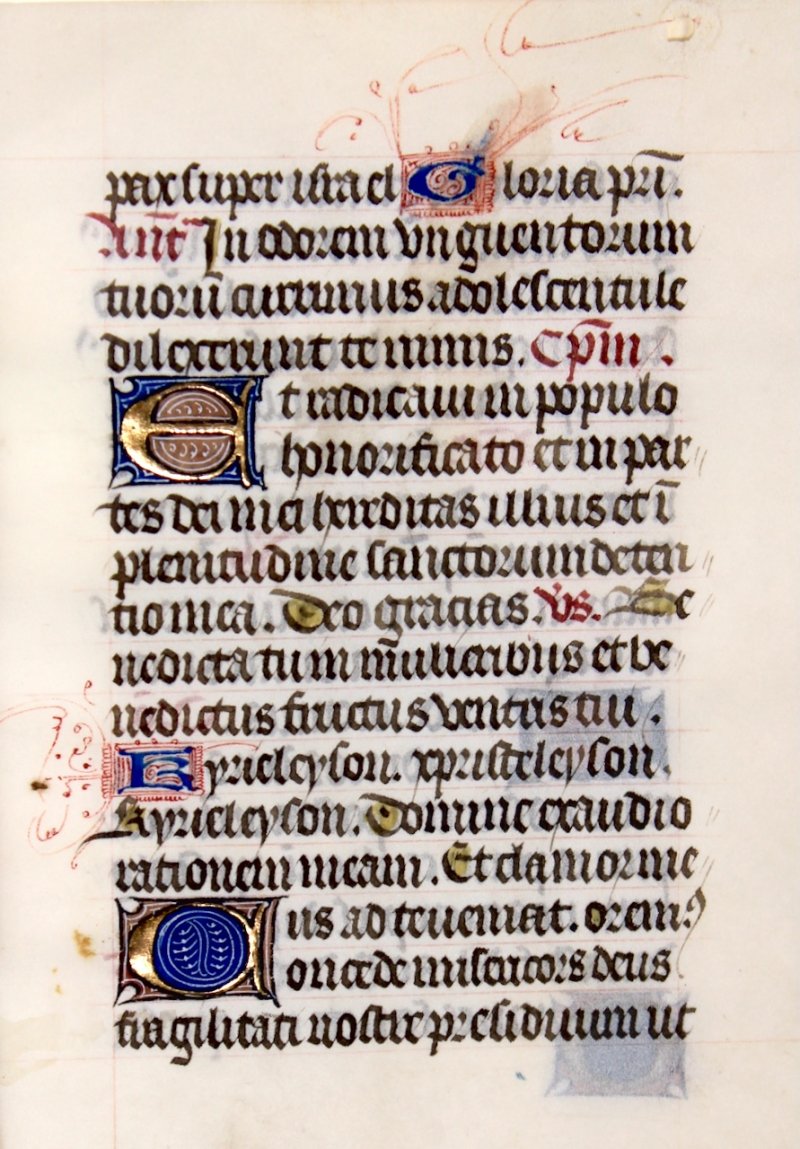 pax super israel Gloria pri̅.
An̅t In odorem vnguentorum
tuoru̅ currimus adolescentule
dilexerunt te nimis. Cp̅m.
Et radicaui in populo
honorificato et in par
tes dei mei hereditas illius et i̅
plenitudine sanctorum deten
tio mea. Deo gracias. Vs. Be
nedicta tu in m̅ulieribus et be
nedictus fructus ventris tui.
Kyrieleyson. xpristeleyson.
Kyrieleyson. Domine exaudi o
rationem meam. Et clamor me
us ad te veniat. oremꝰ
Concede misericors deus
fragilitati nostre presidium ut